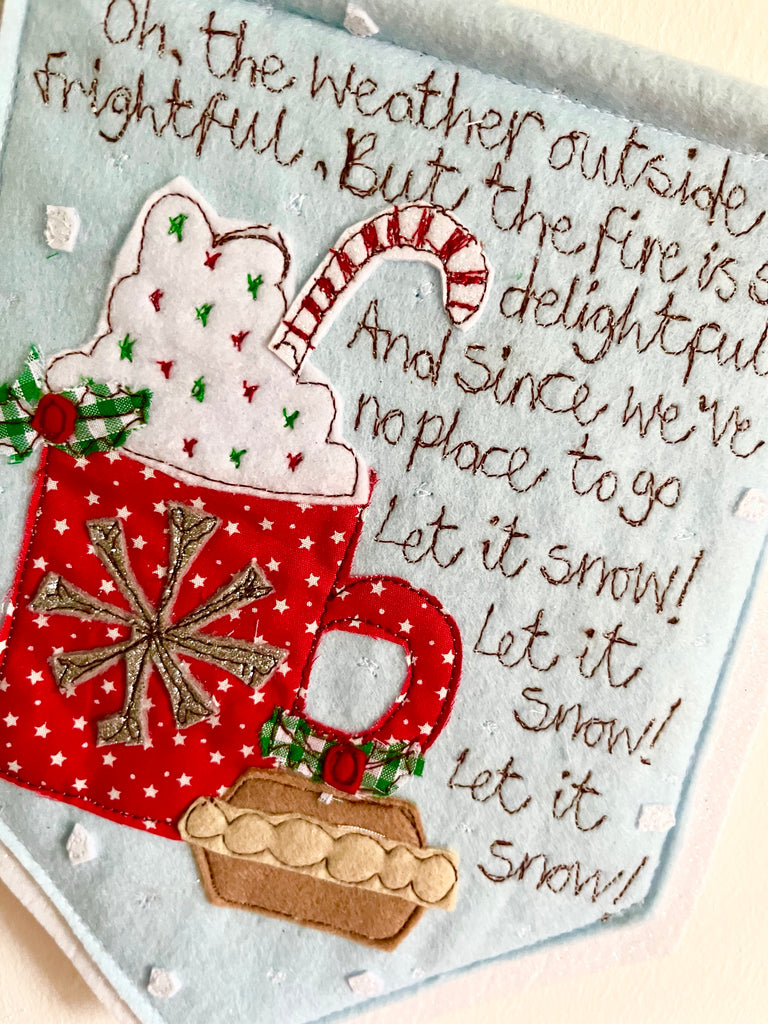 Oh, the weather outside
frightful. But the fire is
delightful
And since we've
no place to go
Let it snow!
Let it
snow!
Let it
snow!